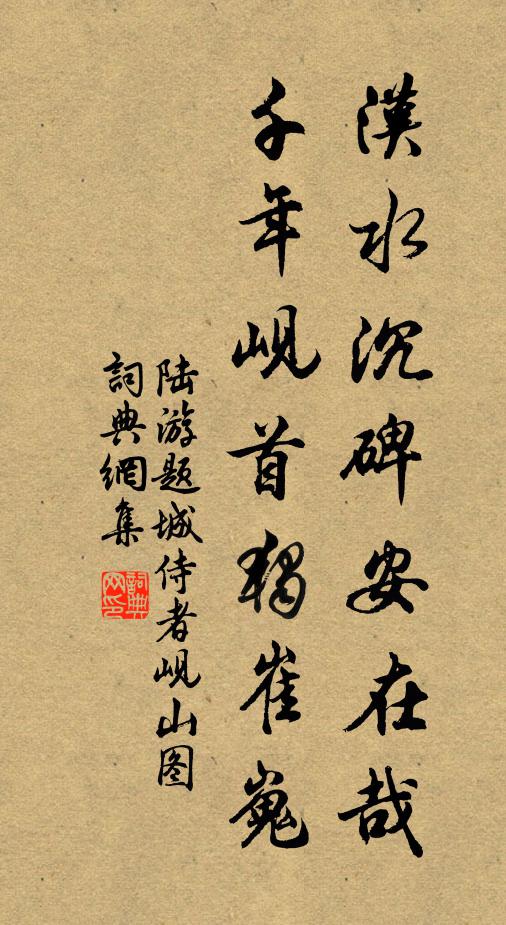 漢水沉碑安在哉
千年峴首獨崔嵬
陆游题城侍者岘山图
詞典網集
詞典网印